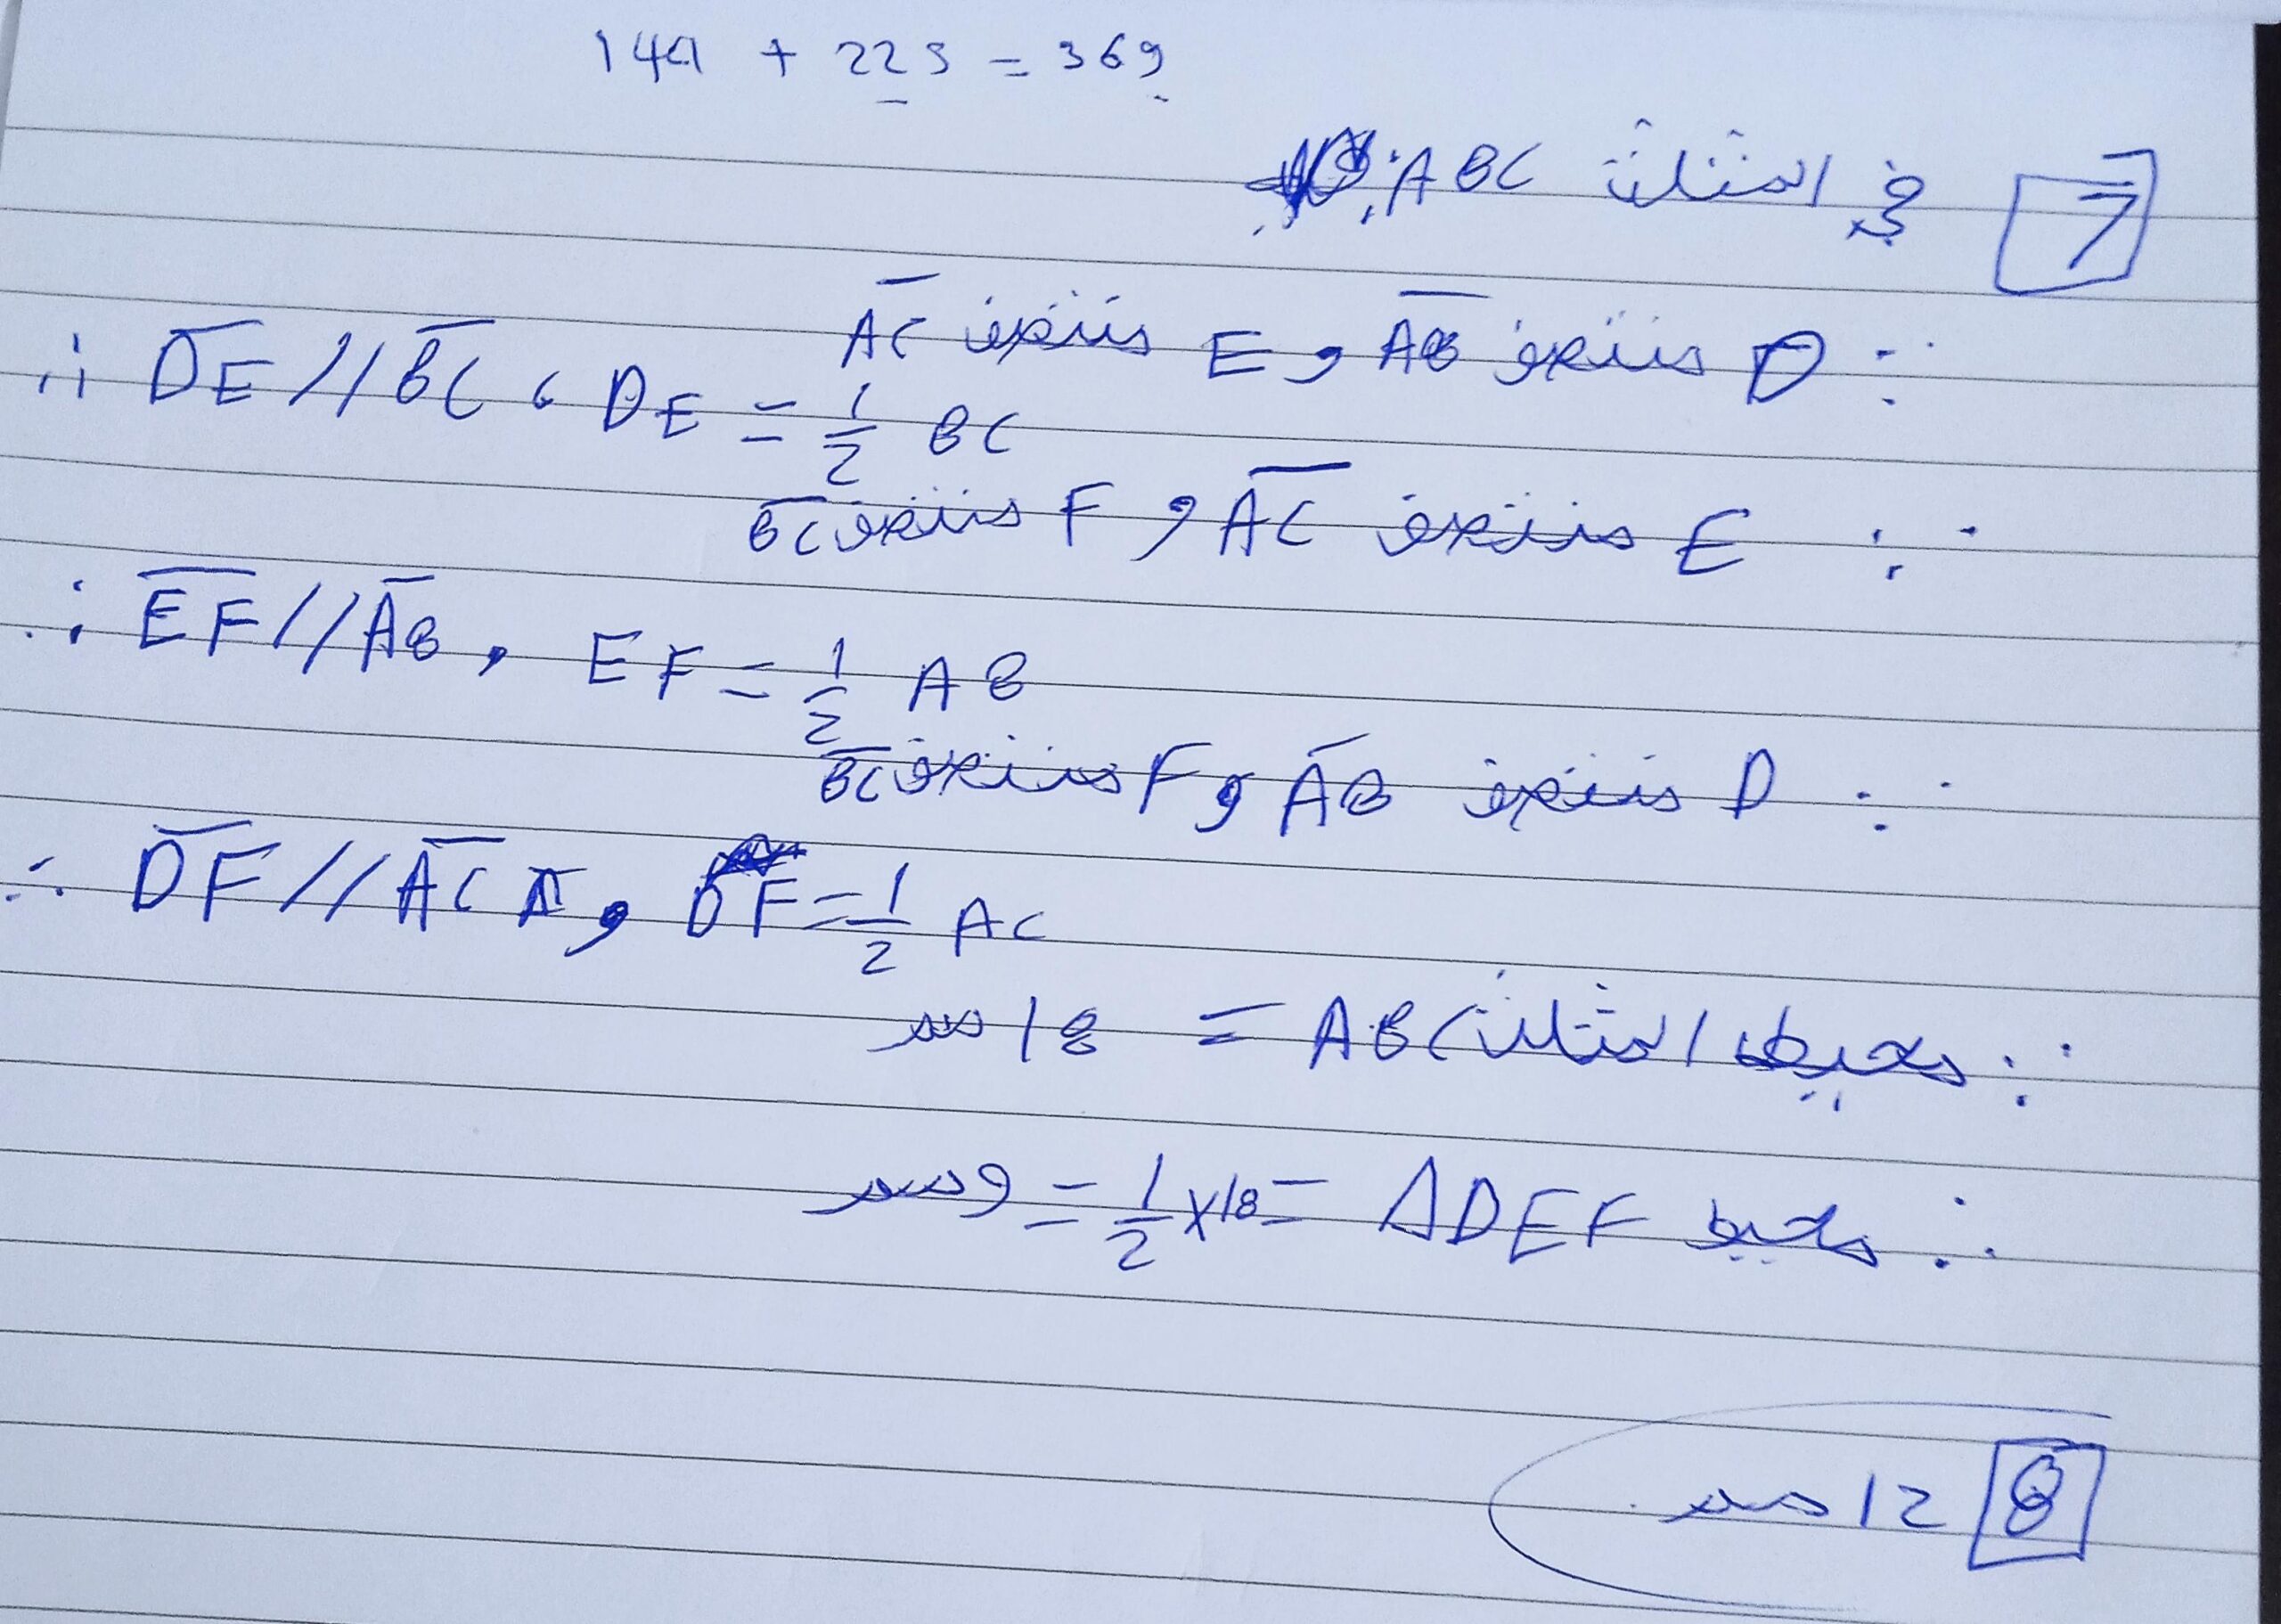 149 + 223 = 369
7 في المثلث ABC:
∵ D منتصف AB و E منتصف AC
∴ DE // BC ، DE = 1/2 BC
∵ E منتصف AC و F منتصف BC
∴ EF // AB , EF = 1/2 AB
∵ D منتصف AB و F منتصف BC
∴ DF // AC و DF = 1/2 AC
∵ محيط المثلث ABC = 18 سم
∴ محيط ΔDEF = 1/2 × 18 = 9 سم
8 12 سم